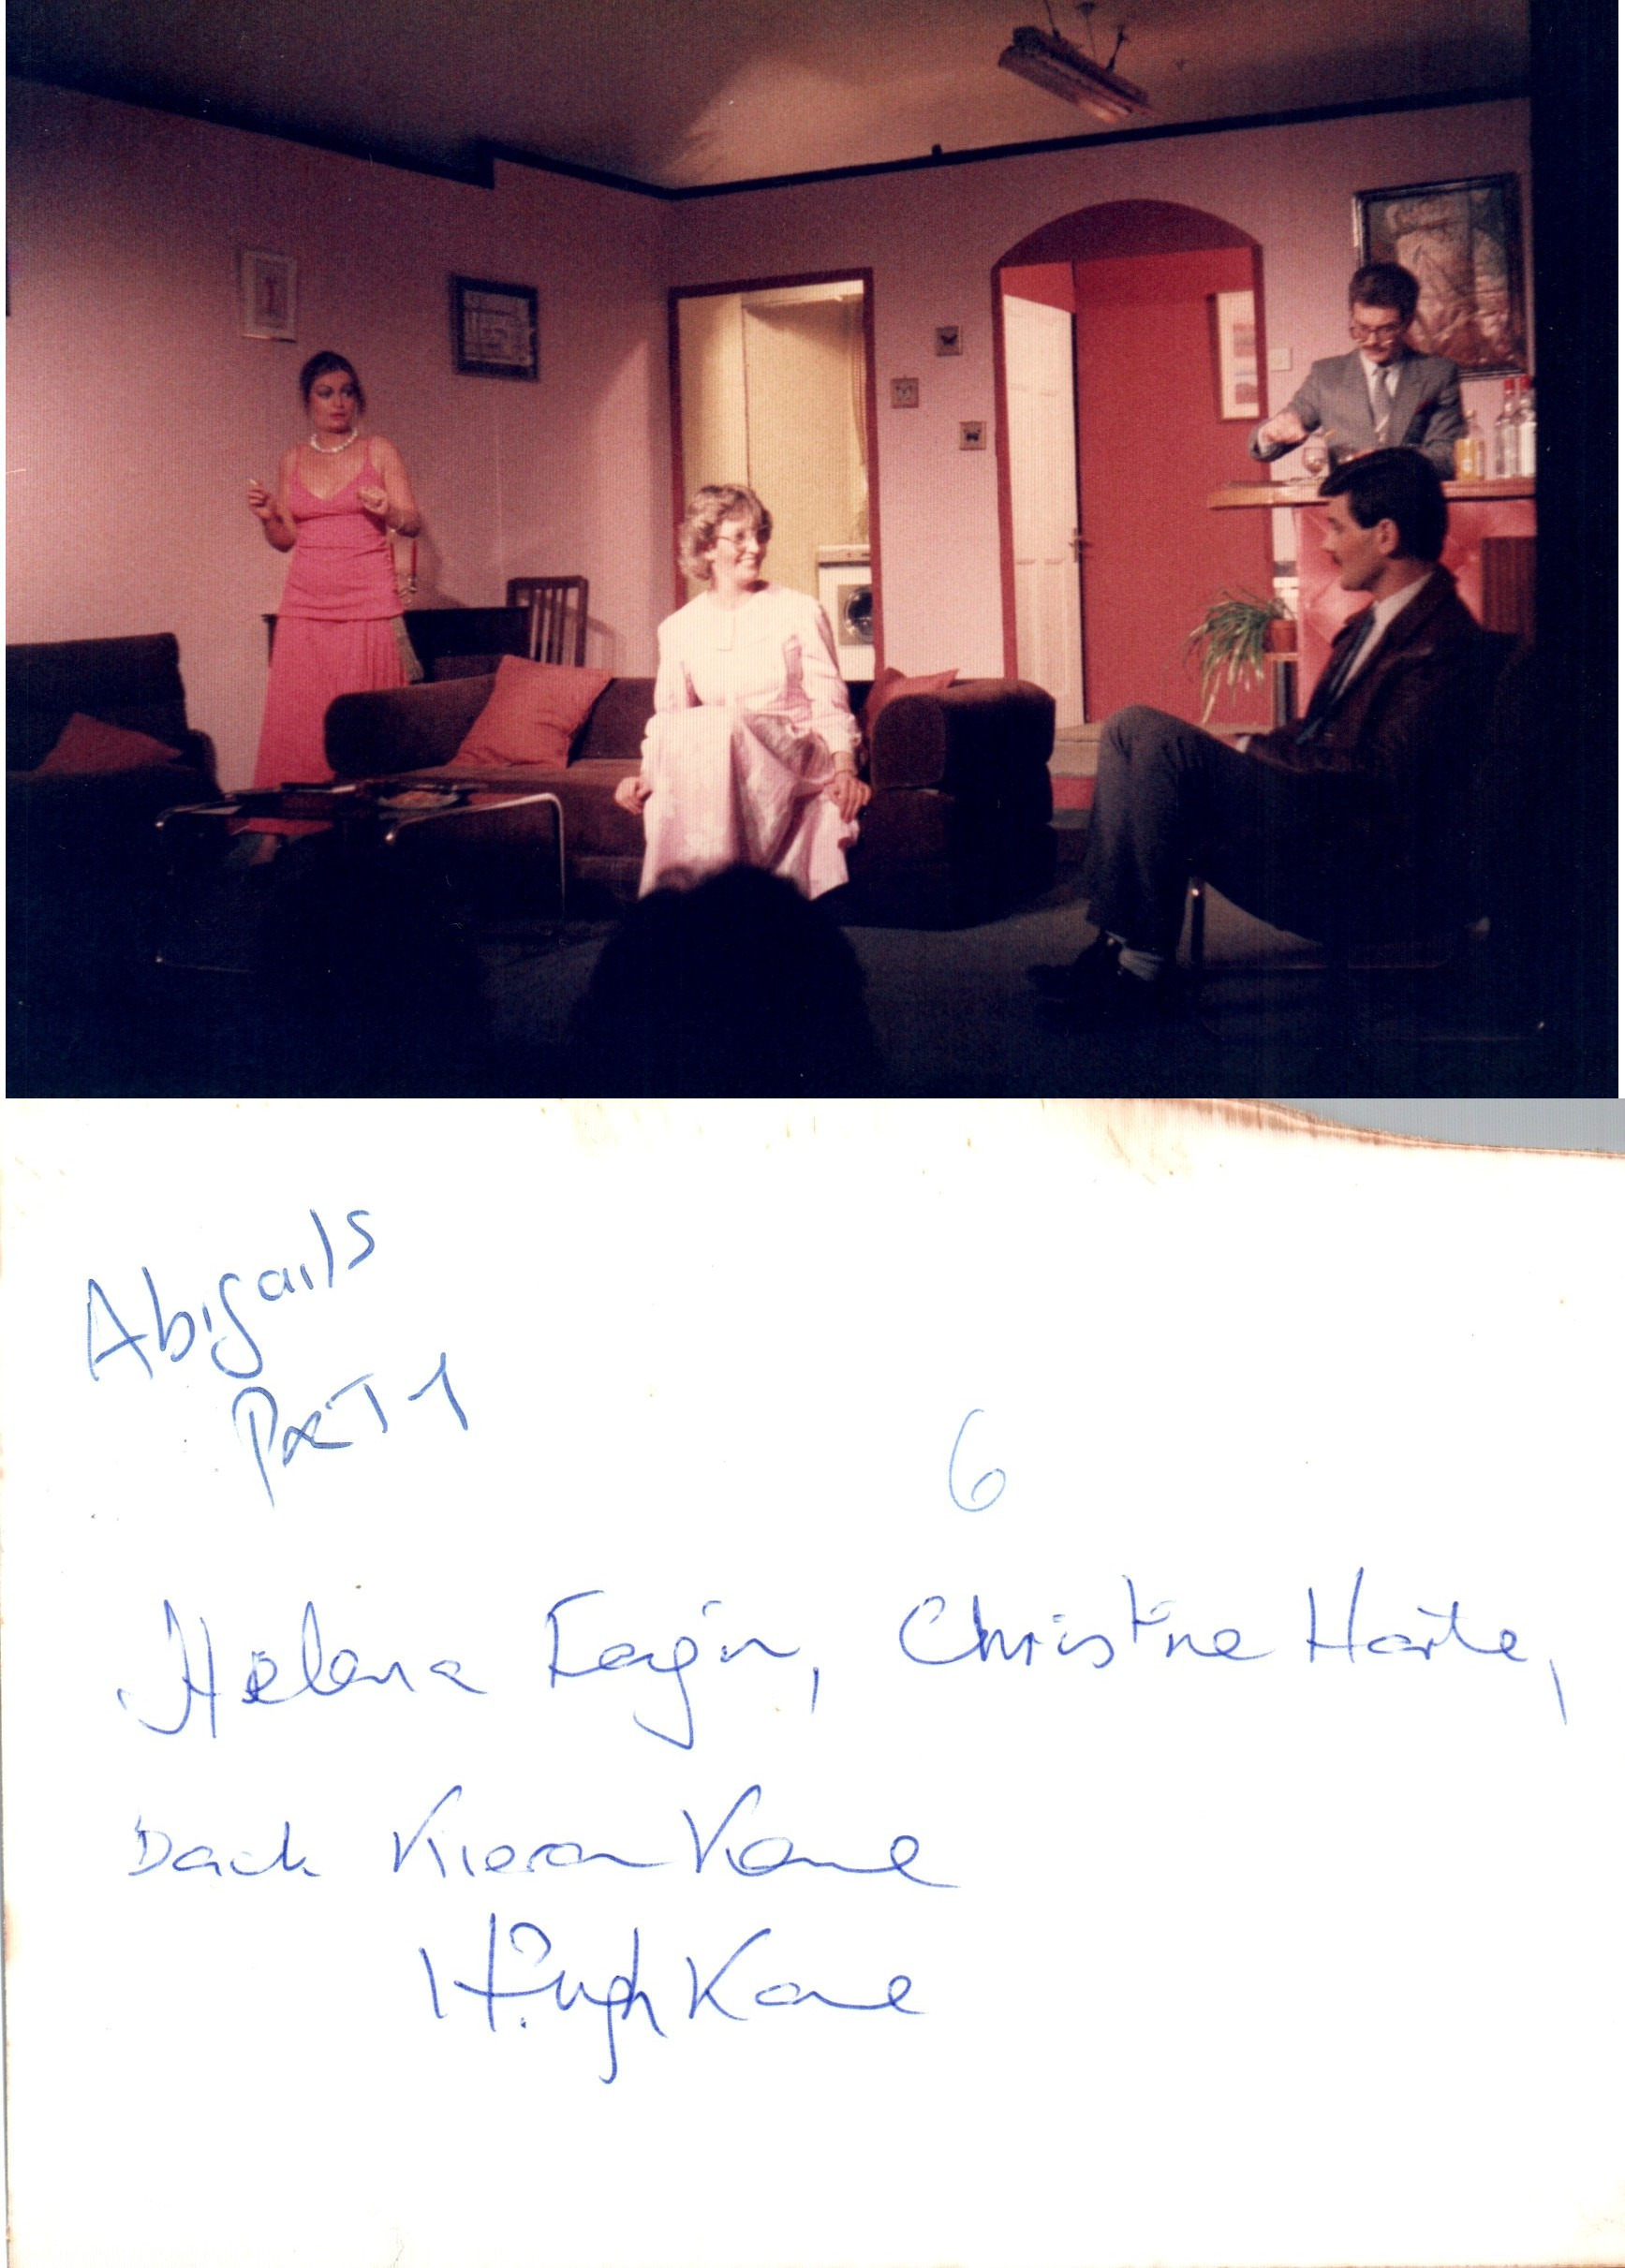 Abigails
Party
6
Helena Fagin, Christine Harte,
Back Kieran Kane
Hugh Kane